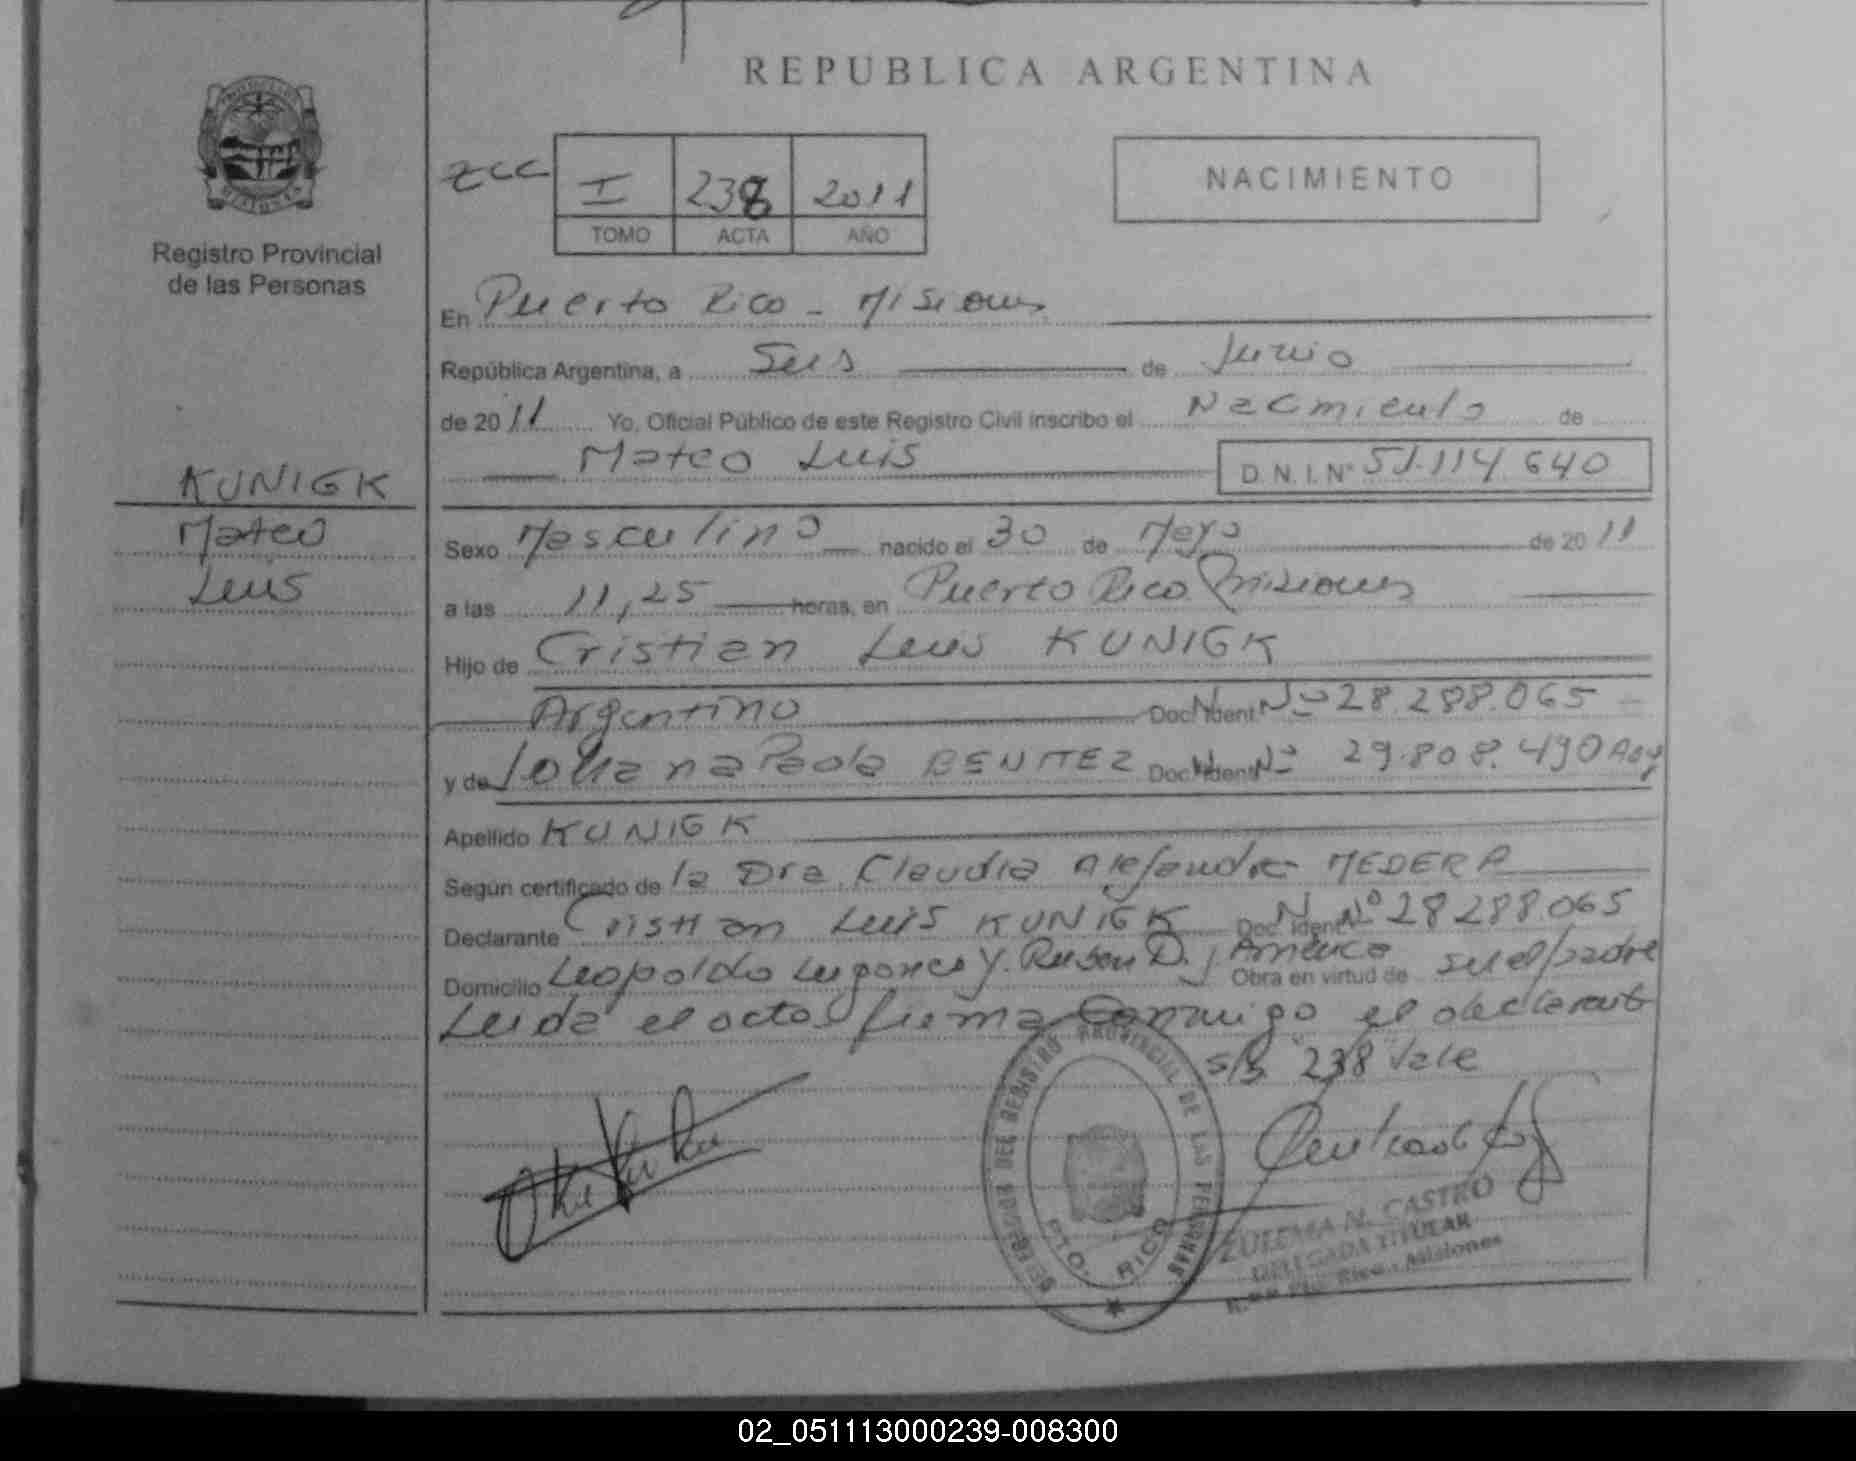 REPUBLICA ARGENTINA
Registro Provincial
de las Personas
I 238 2011
TOMO ACTA AÑO
NACIMIENTO
En Puerto Rico - Misiones
República Argentina, a Seis de Junio
de 2011 Yo, Oficial Público de este Registro Civil inscribo el Nacimiento de
Mateo Luis D.N.I.Nº 51.114.640
KUNIGK
Mateo
Luis
Sexo Masculino nacido el 30 de Mayo de 2011
a las 11,25 horas, en Puerto Rico Misiones
Hijo de Cristian Luis KUNIGK
Argentino Doc. Ident. Nº 28.288.065
y de Johana Paola BENITEZ Doc. Ident. Nº 29.808.490 Arg
Apellido KUNIGK
Según certificado de la Dra Claudia Alejandra MEDERA
Declarante Cristian Luis KUNIGK Doc. Ident. Nº 28288.065
Domicilio Leopoldo Lugones y Ruben D. América Obra en virtud de su el padre
Leida el acta firma conmigo el declarante
s/b 238 Vale
DEL REGISTRO PROVINCIAL DE LAS PERSONAS
PTO. RICO
ZULEMA N. CASTRO
DELEGADA TITULAR
Pto. Rico - Misiones
02_051113000239-008300